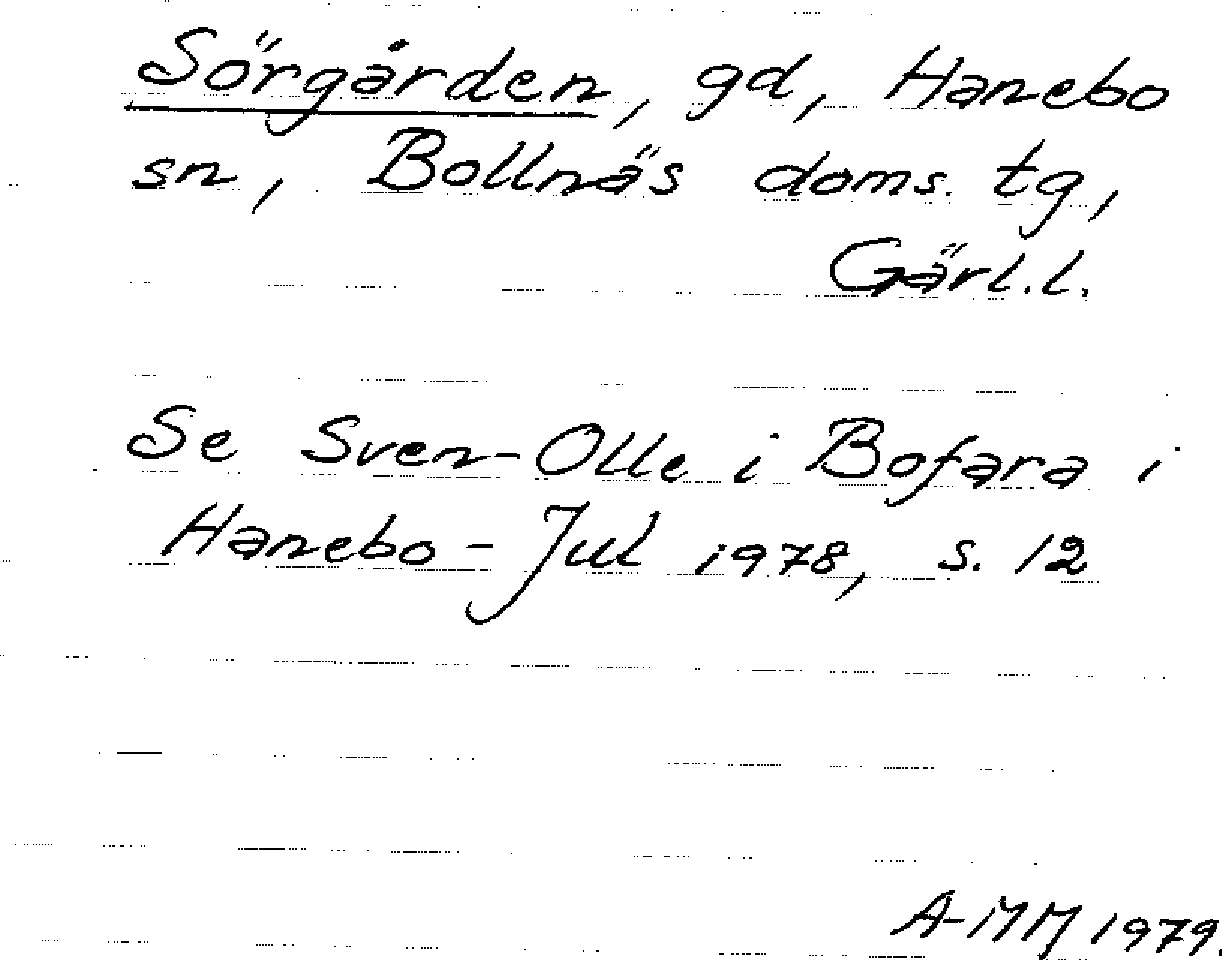 Sörgården, gd, Hanebo
sn, Bollnäs doms. tg,
Gärl.l.
Se Sven-Olle i Bofara i
Hanebo-Jul 1978, s. 12
A-MM 1979.